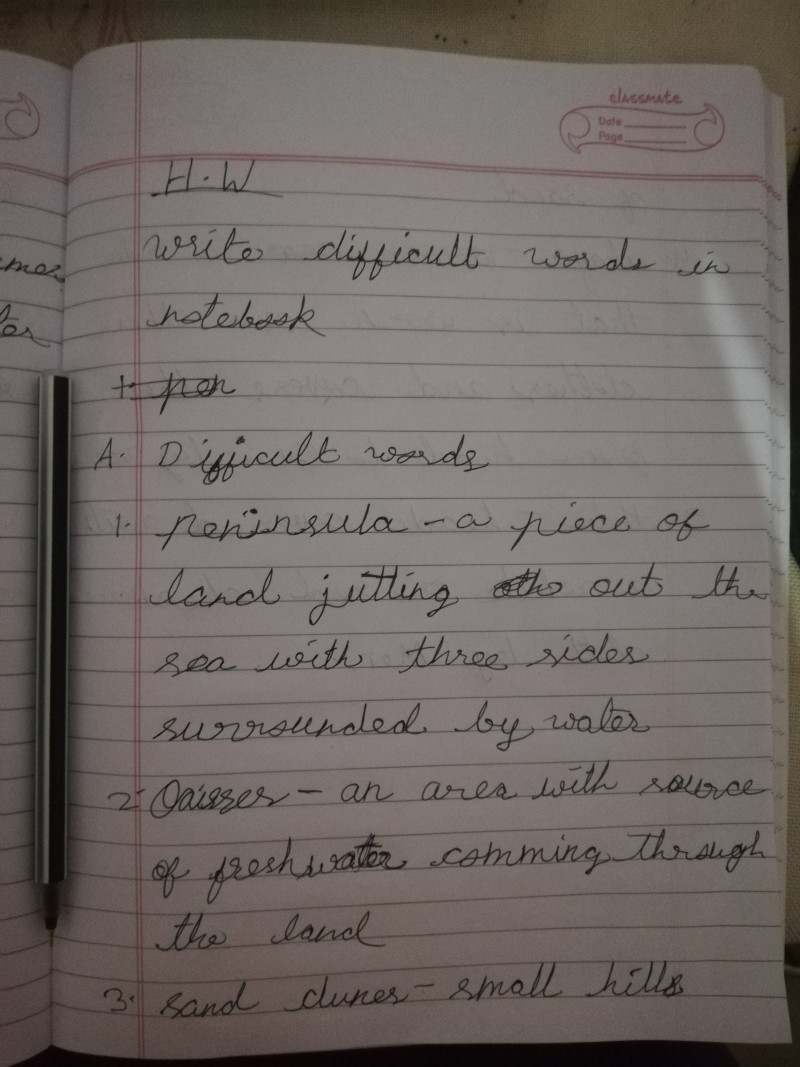 mes
ter
classmate
Date
Page
H.W
write difficult words in
notebook
1. pen
A. Difficult words
1. peninsula - a piece of
land jutting out the
sea with three sides
surrounded by water
2. Oaisses - an area with source
of freshwater comming through
the land
3. sand dunes - small hills